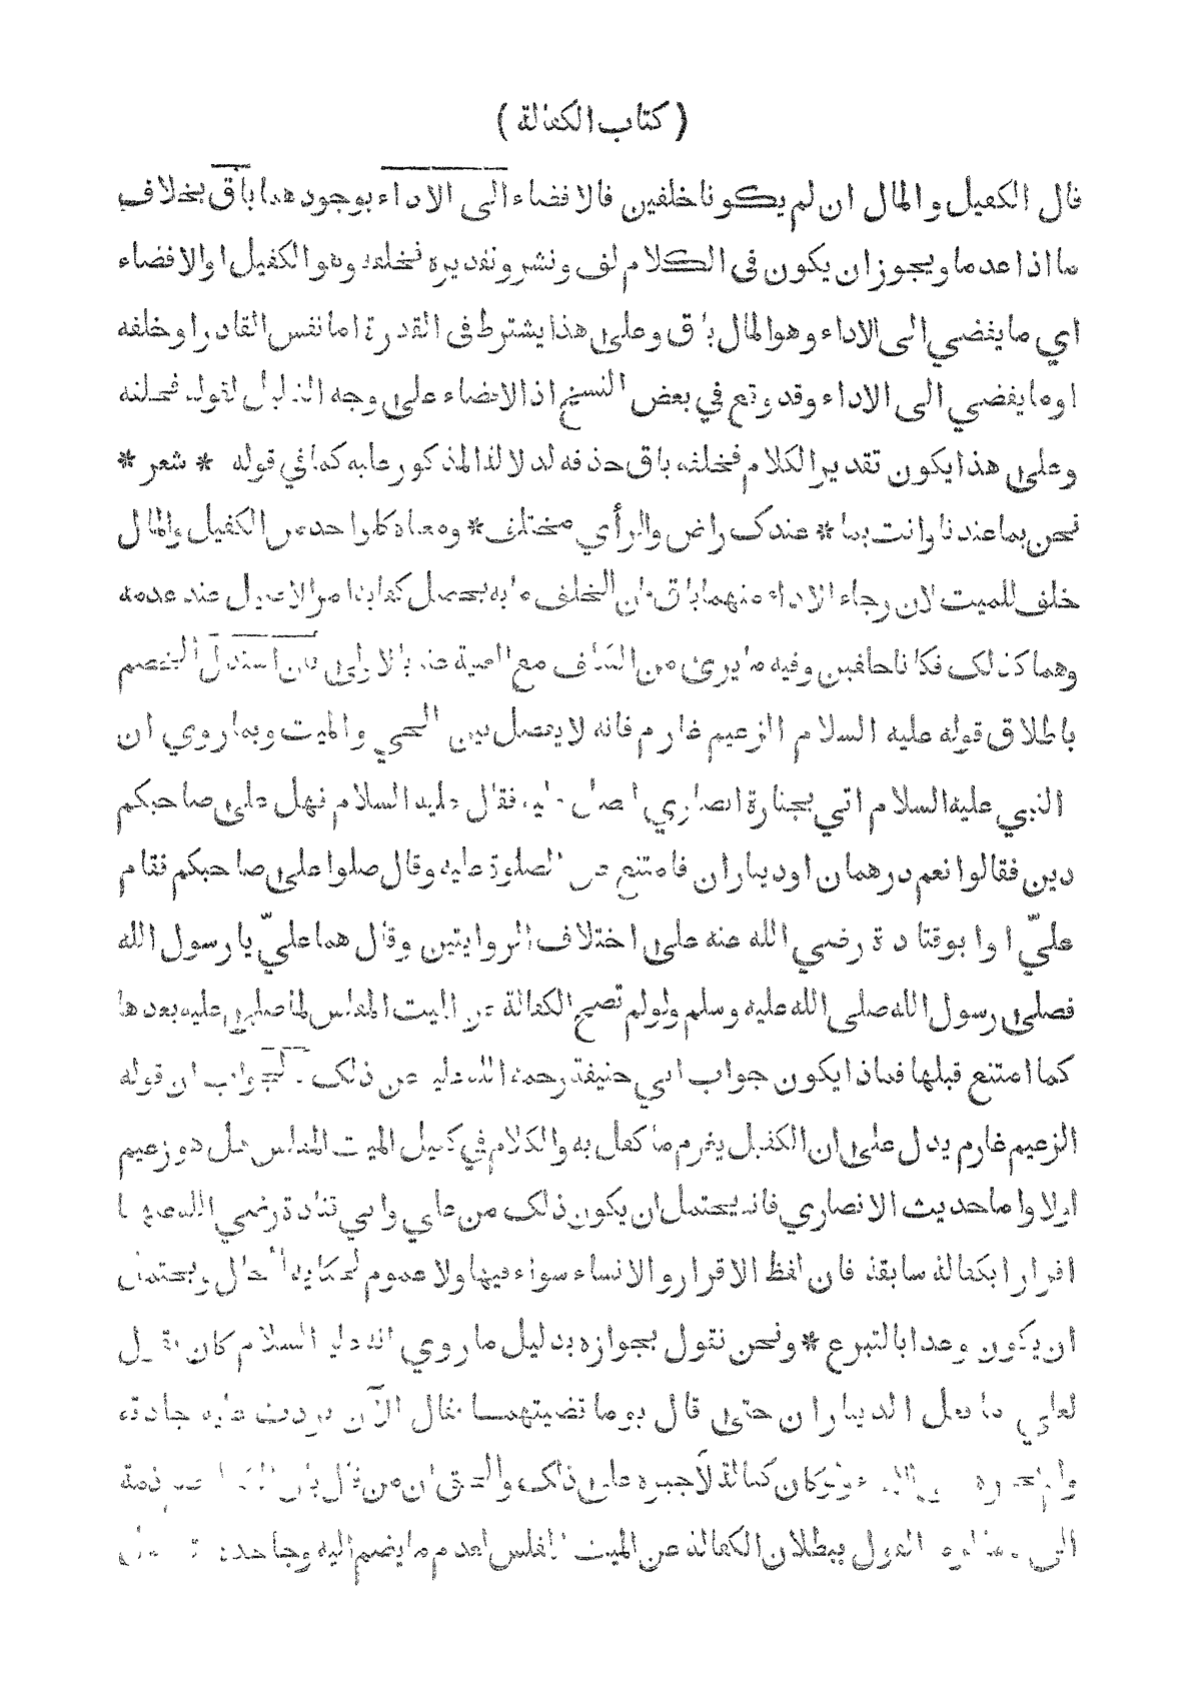 ( كتاب الكفالة )
قال الكفيل والمال ان لم يكونا خلفين فالافضاء الى الاداء بوجودهما باق بخلاف
ما اذا عدما ويجوز ان يكون في الكلام لف ونشر وتقديره فخلفه وهو الكفيل او الافضاء
اي ما يفضي الى الاداء وهو المال باق وعلى هذا يشترط في القدرة اما نفس القادر او خلفه
او ما يفضي الى الاداء وقد وقع في بعض النسخ اذ الافضاء على وجه التعليل لقوله فخلفه
وعلى هذا يكون تقدير الكلام فخلفه باق حذفه لدلالة المذكور عليه كما في قوله * شعر *
نحن بما عندنا وانت بما * عندك راض والرأي مختلف * ومعناه كل واحد من الكفيل والمال
خلف للميت لان رجاء الاداء منهما باق فان الخلف ما به يحصل كفاية امر الاصيل عند عدمه
وهما كذلك فكانا خلفين وفيه ما يرى من التكلف مع الغنية عنه بالاولى فان استدل الخصم
باطلاق قوله عليه السلام الزعيم غارم فانه لا يفصل بين الحي والميت وبما روي ان
النبي عليه السلام اتي بجنازة انصاري ليصلى عليه فقال عليه السلام فهل على صاحبكم
دين فقالوا نعم درهمان او ديناران فامتنع عن الصلوة عليه وقال صلوا على صاحبكم فقام
عليّ او ابو قتادة رضي الله عنه على اختلاف الروايتين وقال هما عليّ يا رسول الله
فصلى رسول الله صلى الله عليه وسلم ولو لم تصح الكفالة عن الميت المفلس لما صلى عليه بعدها
كما امتنع قبلها فماذا يكون جواب ابي حنيفة رحمة الله عليه عن ذلك فالجواب ان قوله
الزعيم غارم يدل على ان الكفيل يغرم ما كفل به والكلام في كفيل الميت المفلس هل هو زعيم
اولا واما حديث الانصاري فانه يحتمل ان يكون ذلك من علي وابي قتادة رضي الله عنهما
اقرارا بكفالة سابقة فان لفظ الاقرار والانشاء سواء فيها ولا عموم لحكاية الحال ويحتمل
ان يكون وعدا بالتبرع * ونحن نقول بجوازه بدليل ما روي انه عليه السلام كان يقول
لعلي ما فعل الديناران حتى قال يوما قضيتهما فقال الآن بردت عليه جلدته
ولم يجبره على الاداء ولو كان كفالة لأجبره على ذلك والحق ان من قال بان ذمة
القول ببطلان الكفالة عن الميت المفلس لعدم ما يضم اليه وجاحده